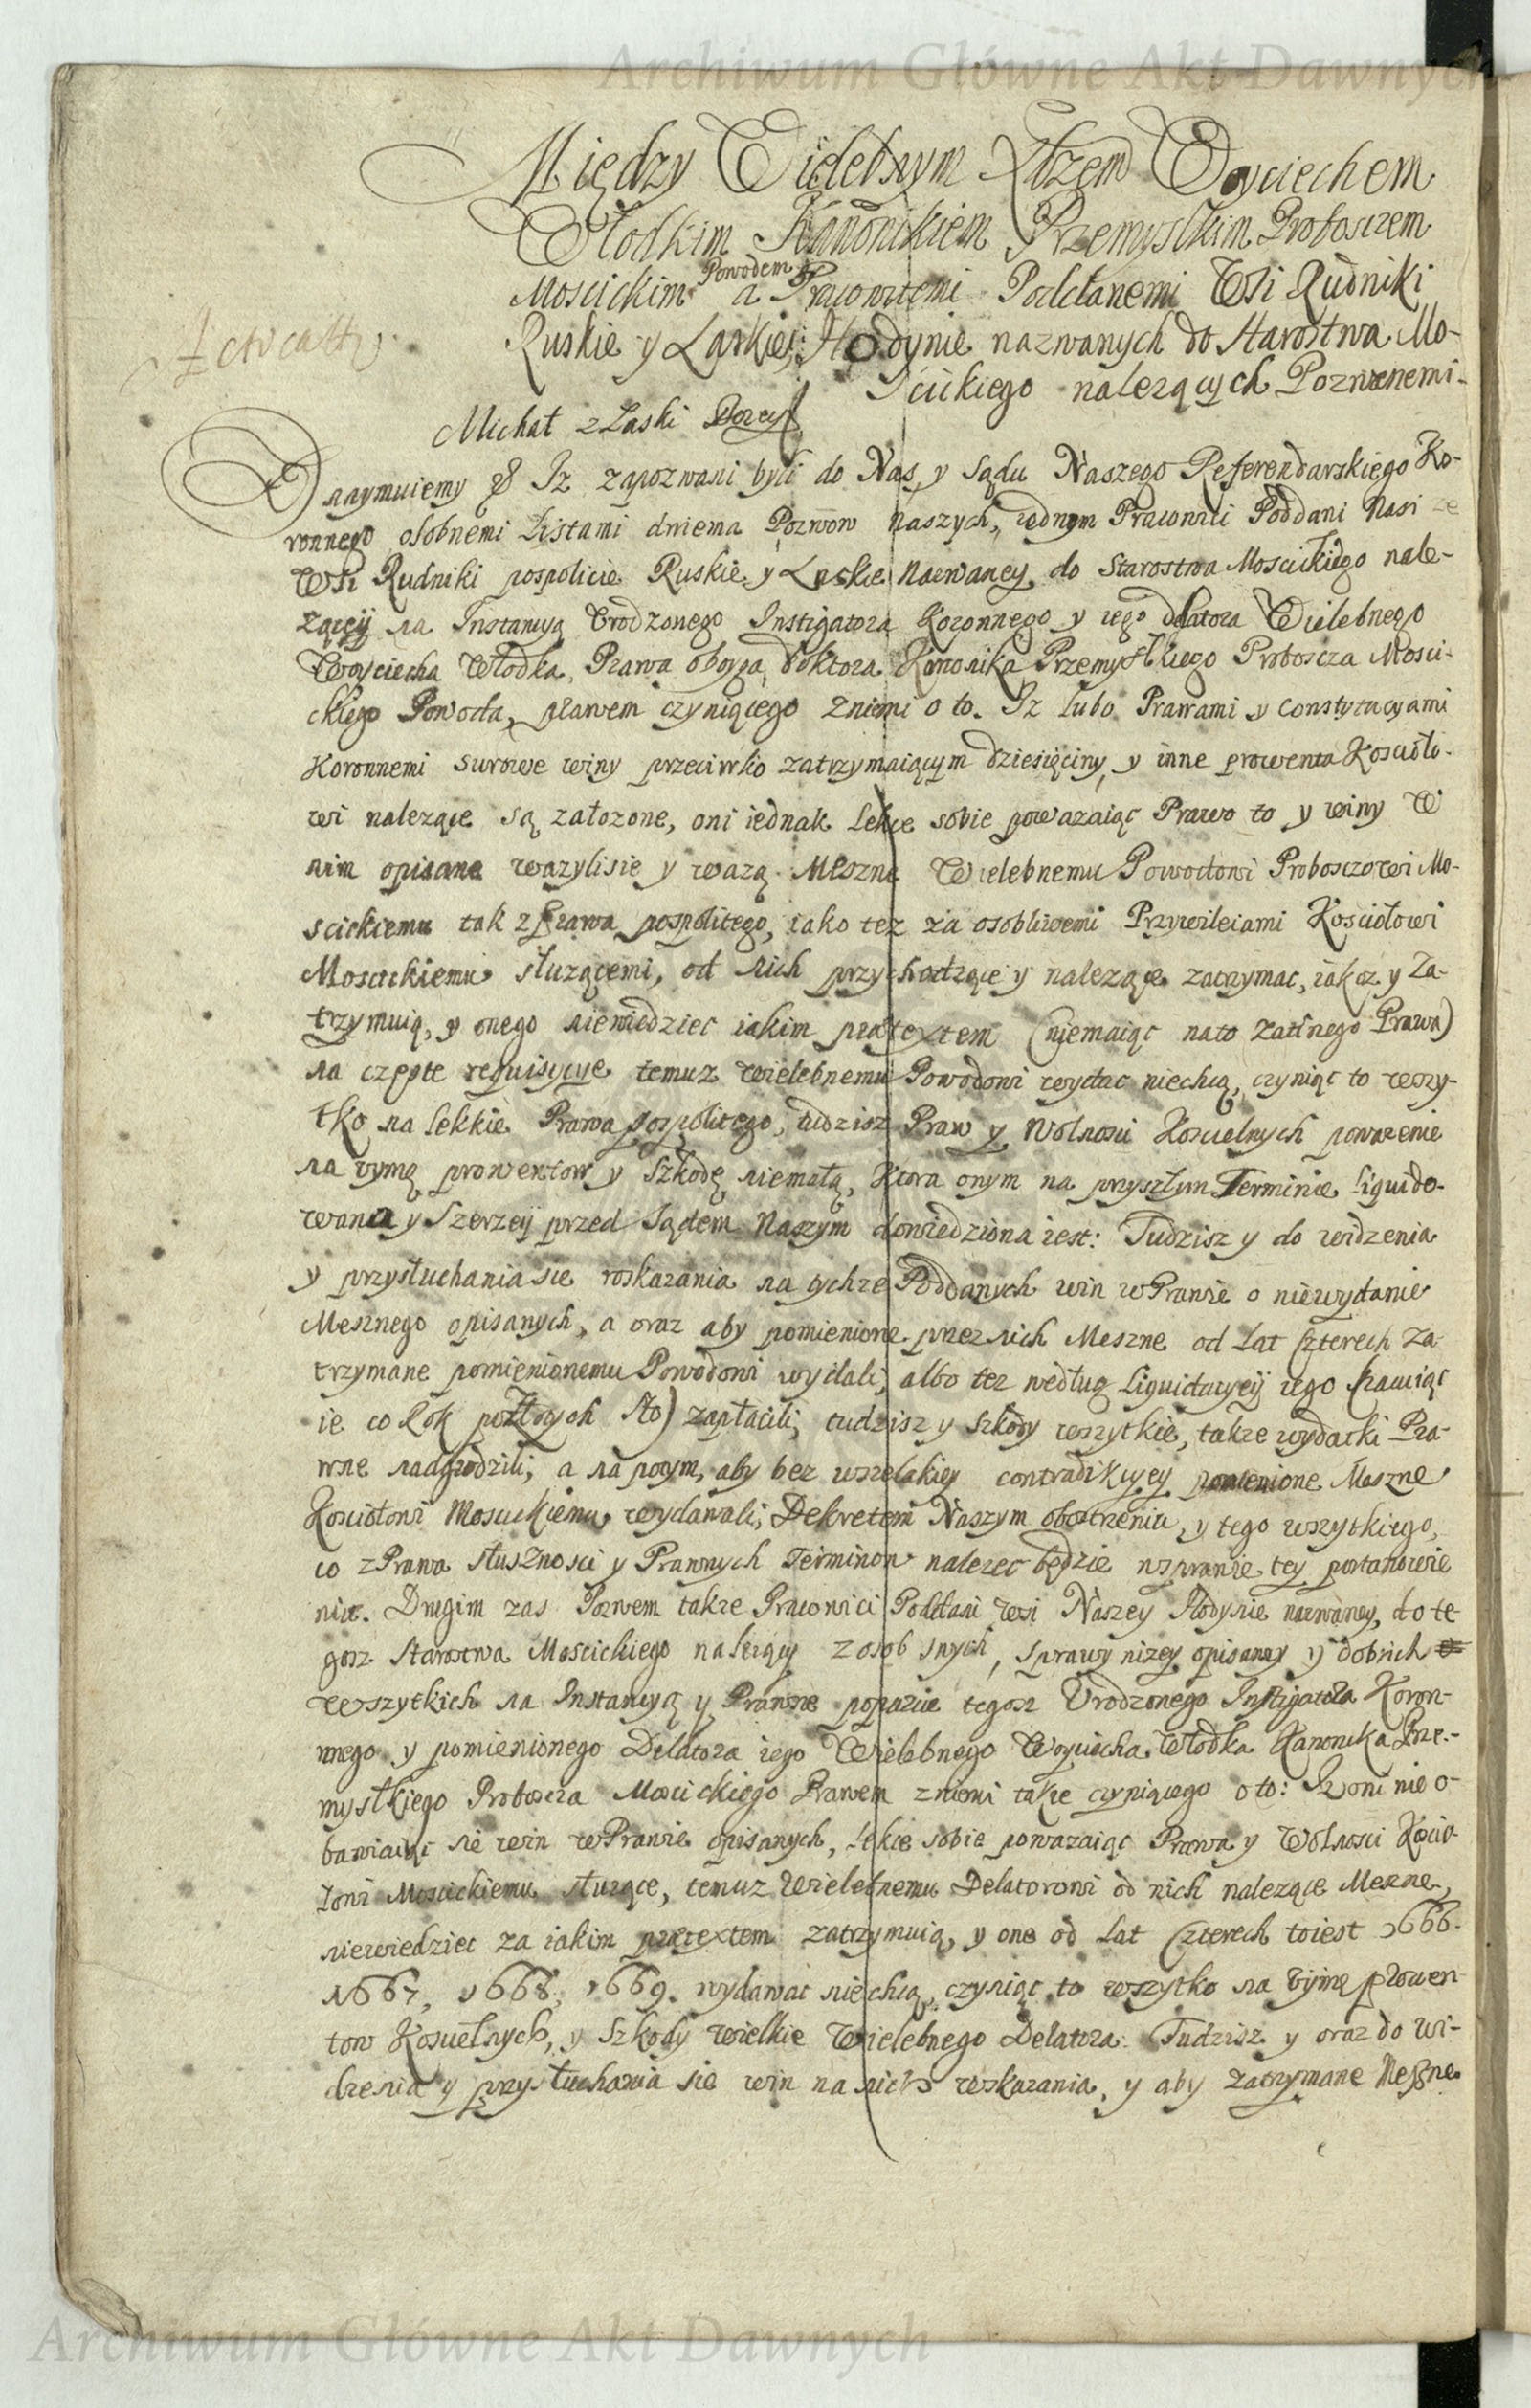 Archiwum Główne Akt Dawnych
Między Wielebnym Xdzem Woyciechem
Włodkim Kanonikiem Przemyslkim Proboszczem
Powodem
Moscickim a Pracowitemi Poddanemi Wsi Rudniki
Ruskie y Laskie, Hodynie nazwanych do Starostwa Mo-
scickiego nalezących Pozwanemi.
Michał z Laski Bozey
Znaymuiemy Iz zapozwani byli do Nas, y Sądu Naszego Referendarskiego Ko-
ronnego osobnemi Listami dwiema Pozwow naszych, iednym Pracowici Poddani Nasi ze
Wsi Rudniki pospolicie Ruskie y Laskie nazwaney, do Starostwa Moscickiego nale-
zącey na Instancyą Urodzonego Instigatora Koronnego y iego delatora Wielebnego
Woyciecha Włodka, Prawa oboyga doktora Kanonika Przemyslkiego Proboscza Mosci-
ckiego Powoda, prawem czyniącego z niemi o to. Iz lubo Prawami y Constytucyami
Koronnemi surowe winy przeciwko zatrzymaiącym dziesięciny, y inne prowenta Kosciolo-
wi nalezące są załozone, oni iednak lekce sobie powazaiąc Prawo to y winy W
nim opisane wazylisie y wazą Meszne Wielebnemu Powodowi Proboszczowi Mo-
scickiemu tak z Prawa pospolitego, iako tez za osobliwemi Przywileiami Kosciołowi
Moscickiemu słuzącemi, od nich przychodzące y nalezące zatrzymac, iakoz y Za-
trzymuią, y onego niewiedziec iakim prætextem (niemaiąc nato zadnego Prawa)
na częste requisycye temuz wielebnemu Powodowi wydac niechcą, czyniąc to wszy-
tko na lekkie Prawa pospolitego, tudzisz Praw y Wolnosci Koscielnych powazenie
na uymę prowentow y Szkodę niemałą, ktora onym na przyszłym Terminie liquido-
wana y Szerzey przed Sądem Naszym dowiedziona iest: Tudzisz y do widzenia
y przysłuchania sie roskazania na tychze Poddanych win w Prawie o niewydanie
Mesznego opisanych, a oraz aby pomienione przez nich Meszne od Lat Czterech za-
trzymane pomienionemu Powodowi wydali, albo tez według Liquidacyey iego
ie co Rok po Złotych sto) zapłacili, tudzisz y Szkody wszytkie, takze wydatki Pra-
wne nadgrodzili, a na potym, aby bez wszelakiey contradikcyey pomienione Meszne
Kosciołowi Moscickiemu wydawali, Dekretem Naszym obostrzenia, y tego wszytkiego,
co z Prawa słusznosci y Prawnych Terminow nalezec będzie w sprawie tey postanowie
nia. Drugim zas Pozwem takze Pracowici Poddani wsi Naszey Hodynie nazwaney, do te
gosz Starostwa Moscickiego nalezący z osob swych, sprawy nizey opisaney y dobrich
Wszytkich na Instancyą y Prawne poparcie tegosz Urodzonego Instigatora Koron-
nego y pomienionego Delatora iego Wielebnego Woyciecha Włodka Kanonika Prze-
myslkiego Proboscza Moscickiego Prawem z niemi takze czyniącego o to: Iz oni nie o-
bawiaiąc sie win w Prawie opisanych, lekce sobie powazaiąc Prawa y Wolnosci Koscio-
łowi Moscickiemu słuzące, temuz Wielebnemu Delatorowi od nich nalezące Meszne,
niewiedziec za iakim prætextem zatrzymuią, y one od Lat Czterech toiest 1666.
1667, 1668, 1669. wydawac niechcą, czyniąc to wszytko na Uymę prowen-
tow Koscielnych, y Szkody wielkie Wielebnego Delatora. Tudzisz y oraz do wi-
dzenia y przysłuchania sie win na nich wskazania, y aby zatrzymane Meszne
Archiwum Główne Akt Dawnych